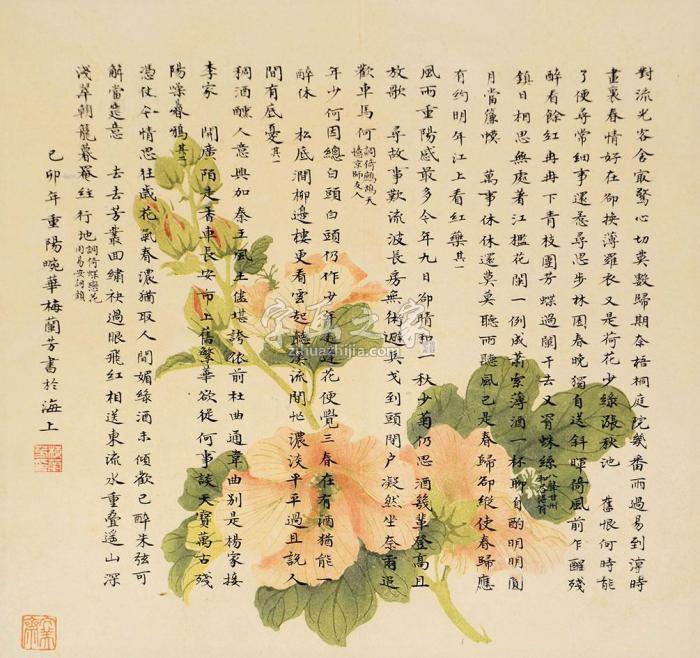 對流光客舍最驚心切莫數歸期奈梧桐庭院幾番雨過易到淳時
畫裏春情好在卻換薄羅衣又是荷花少綠漲秋池 舊恨何時能
了便尋常細事還惹尋思步林園春晚獨自送斜暉倚風前乍醒殘
醉看餘紅冉冉下青枝團芳蝶過闌干去又胥蛛絲
鎮日相思無處著江檻花開一例成蕭索薄酒一杯聊自酌明明圓
月當簾幙 萬事休休還莫莫聽雨聽風已是春歸卻縱使春歸應
有約明年江上看紅藥其一
風雨重陽感最多今年九日卻晴和 秋少菊仍思酒幾輩登高且
放歌 尋故事歎流波長房無術避兵戈到頭閉户凝然坐奈爾追
歡車馬何調倚鷓鴣天 憶京師友人
年少何因總白頭白頭仍作少年遊逢花便覺三春在有酒猶能一
醉休 松底澗柳邊樓更看雲起聽溪流閒忙濃淡平平過且說人
間有底憂其一
稠酒醺人意興加秦王風王儘堪誇依前杜曲通韋曲別是楊家接
李家 開廣陌走香車長安市上舊繁華欲從何事談天寶萬古殘
陽噪暮鴉其二
憑仗命情思狂感花氣春濃猶取人間媚綠酒未傾歡已醉朱弦可
解當筵意 去去芳叢回繡袂過眼飛紅相送東流水重疊遙山深
淺翠朝朧暮靄經行地調倚蝶戀花 用易安詞韻
己卯年重陽畹華梅蘭芳書於海上
字直之家
zihuazhijia.com